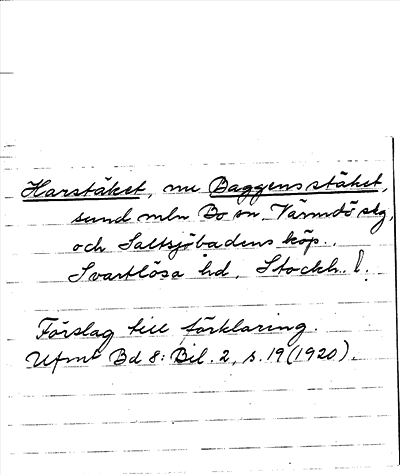 Harstäket, nu Baggensstäket,
sund mln Bo sn, Värmdö slg,
och Saltsjöbadens köp.,
Svartlösa hd, Stockh. l.
Förslag till förklaring.
Ufmt Bd 8: Bil. 2, s. 19 (1920).